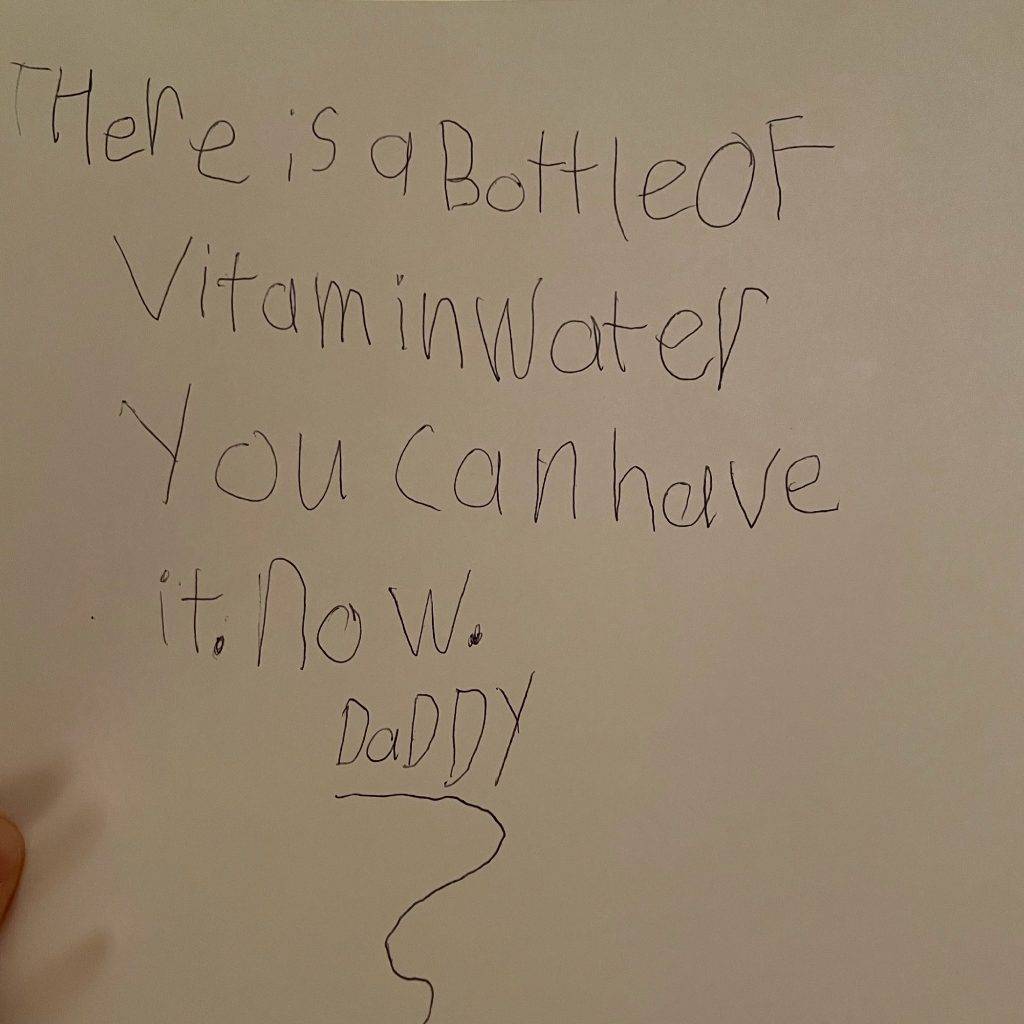 THere is a Bottle OF
Vitamin Water
You can have
it. now.
DaDDY